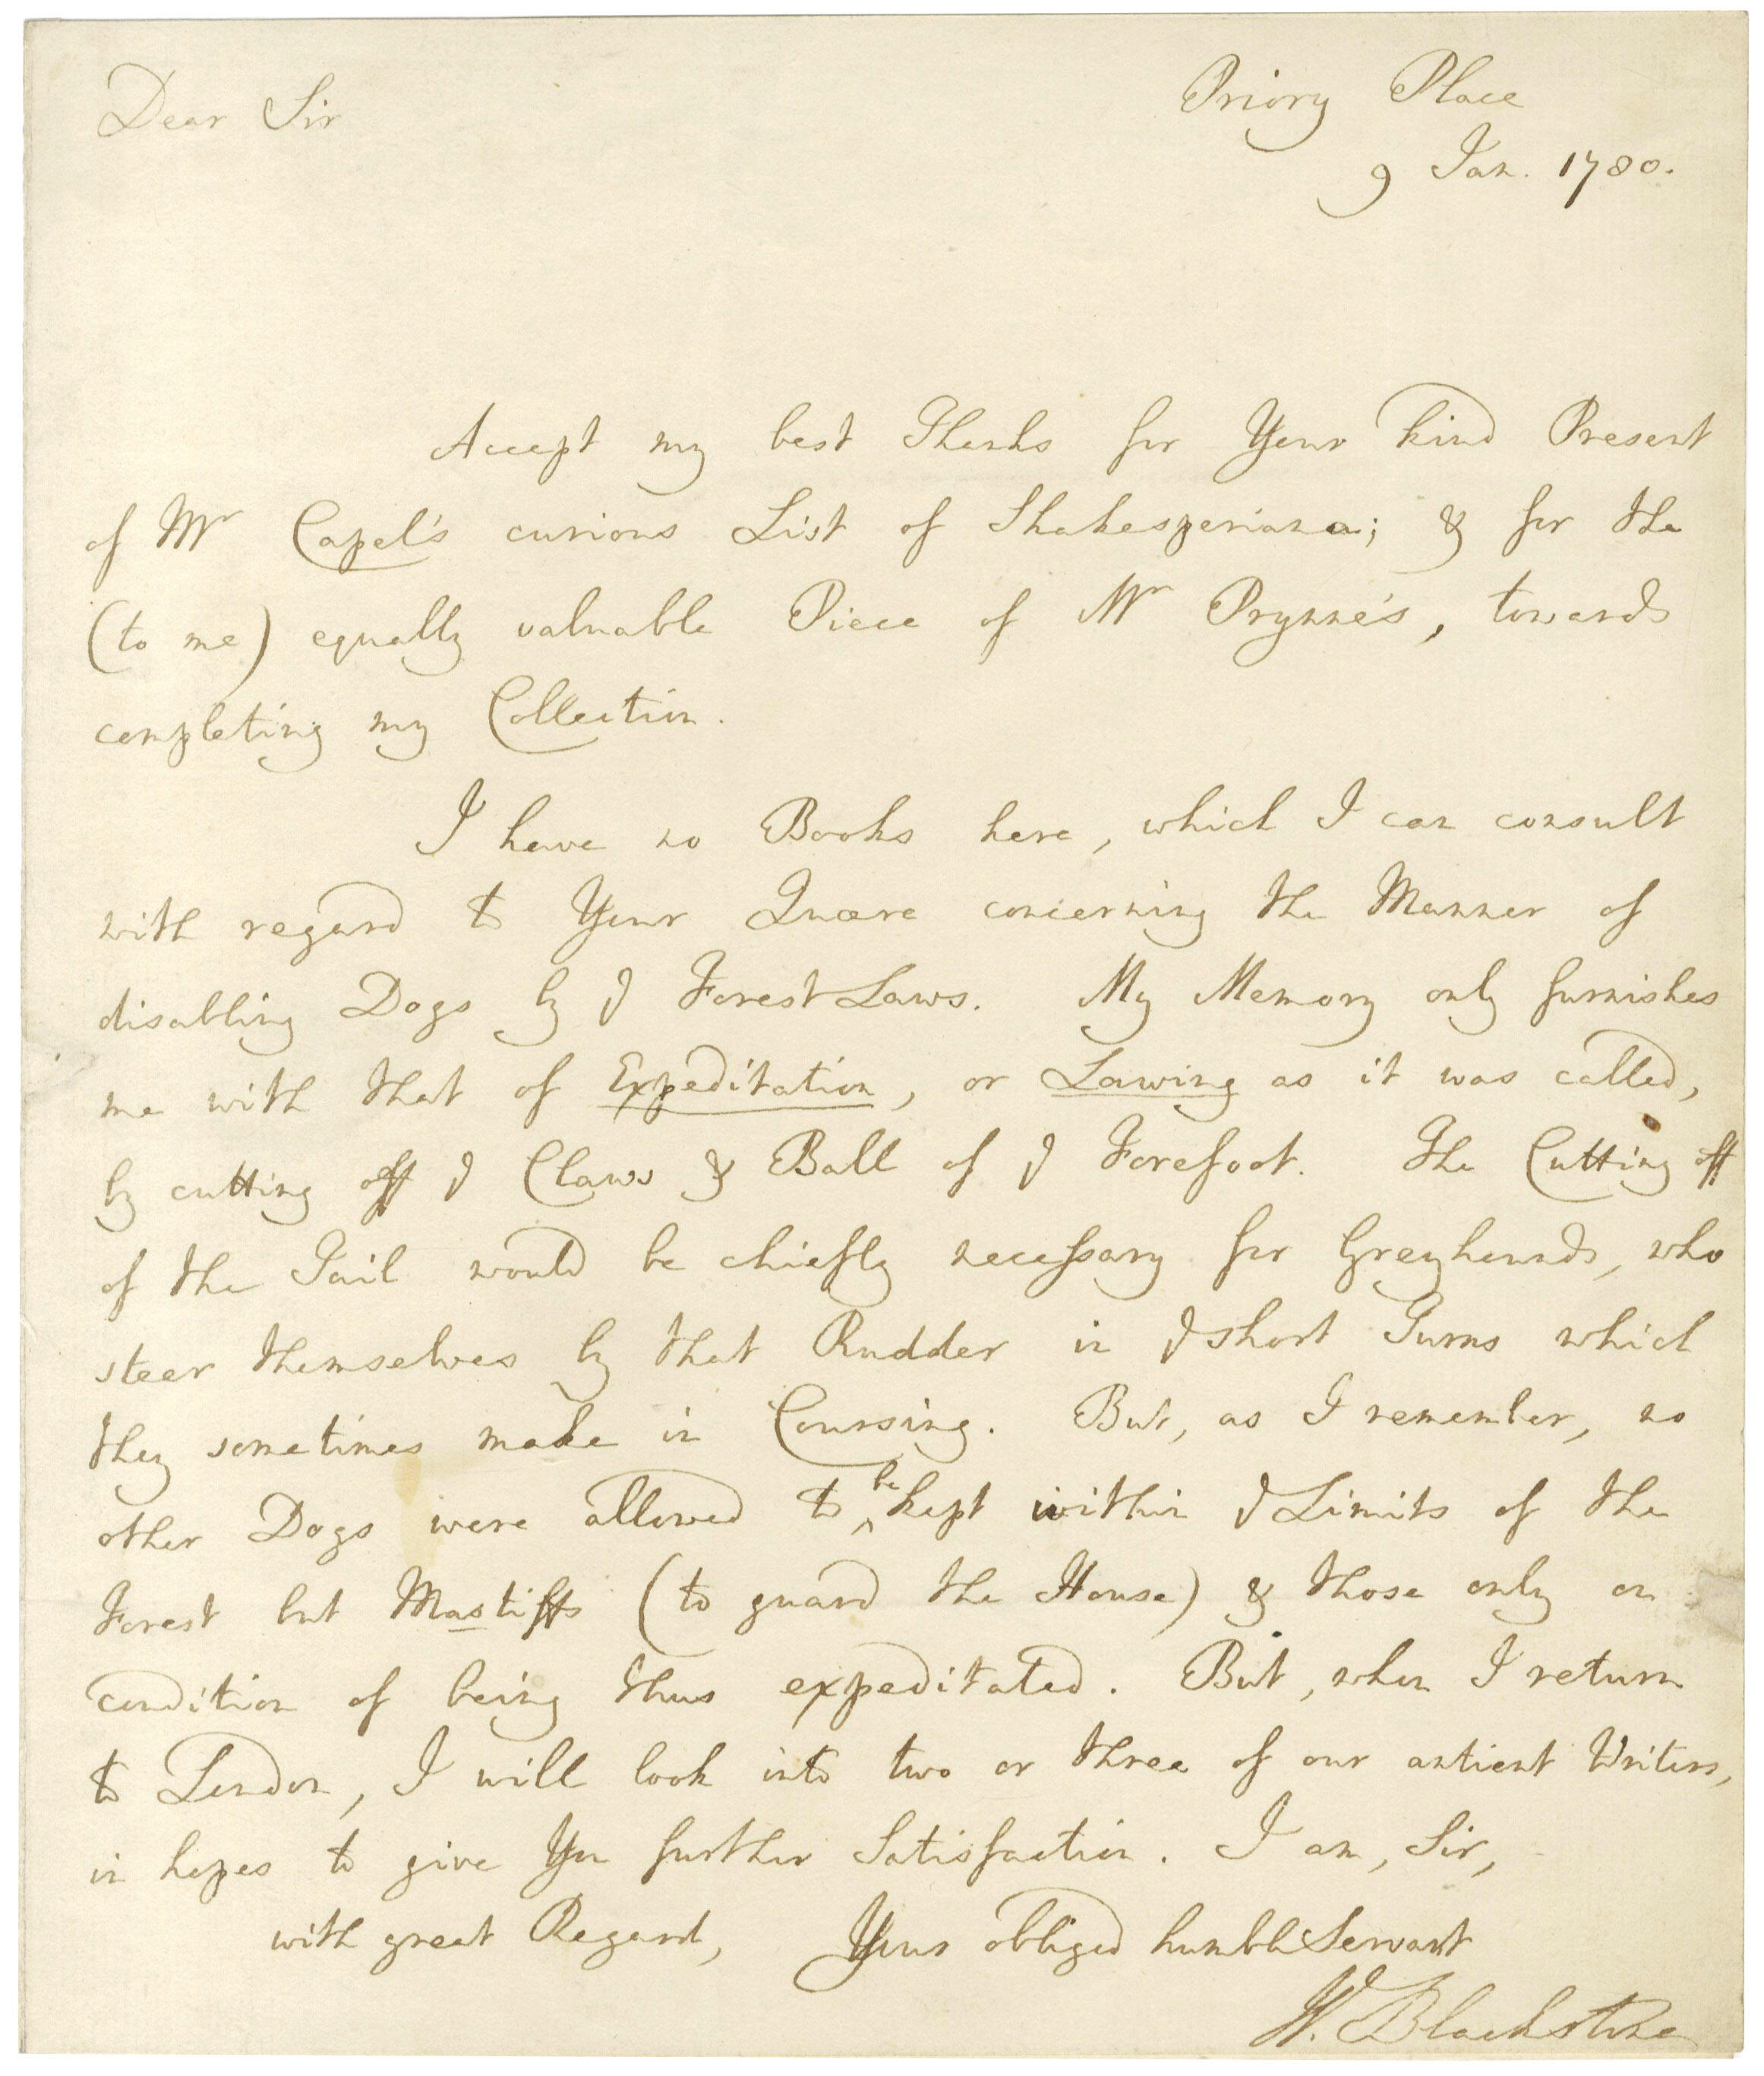 Dear Sir
Priory Place
9 Jan. 1780.
Accept my best Thanks for Your kind Present
of Mr Capel's curious List of Shakesperiana; & for the
(to me) equally valuable Piece of Mr Prynne's, towards
completing my Collection.
I have no Books here, which I can consult
with regard to Your Quære concerning the Manner of
disabling Dogs by ye Forest Laws. My Memory only furnishes
me with that of Expeditation, or Lawing as it was called,
by cutting off ye Claws & Ball of ye Forefoot. The Cutting off
of the Tail would be chiefly necessary for Greyhounds, who
steer themselves by that Rudder in ye short Turns which
they sometimes make in Coursing. But, as I remember, no
other Dogs were allowed to be kept within ye Limits of the
Forest but Mastiffs (to guard the House) & those only on
condition of being thus expeditated. But, when I return
to London, I will look into two or three of our antient Writers,
in hopes to give You further Satisfaction. I am, Sir,
with great Regard, Your obliged humble Servant
W. Blackstone